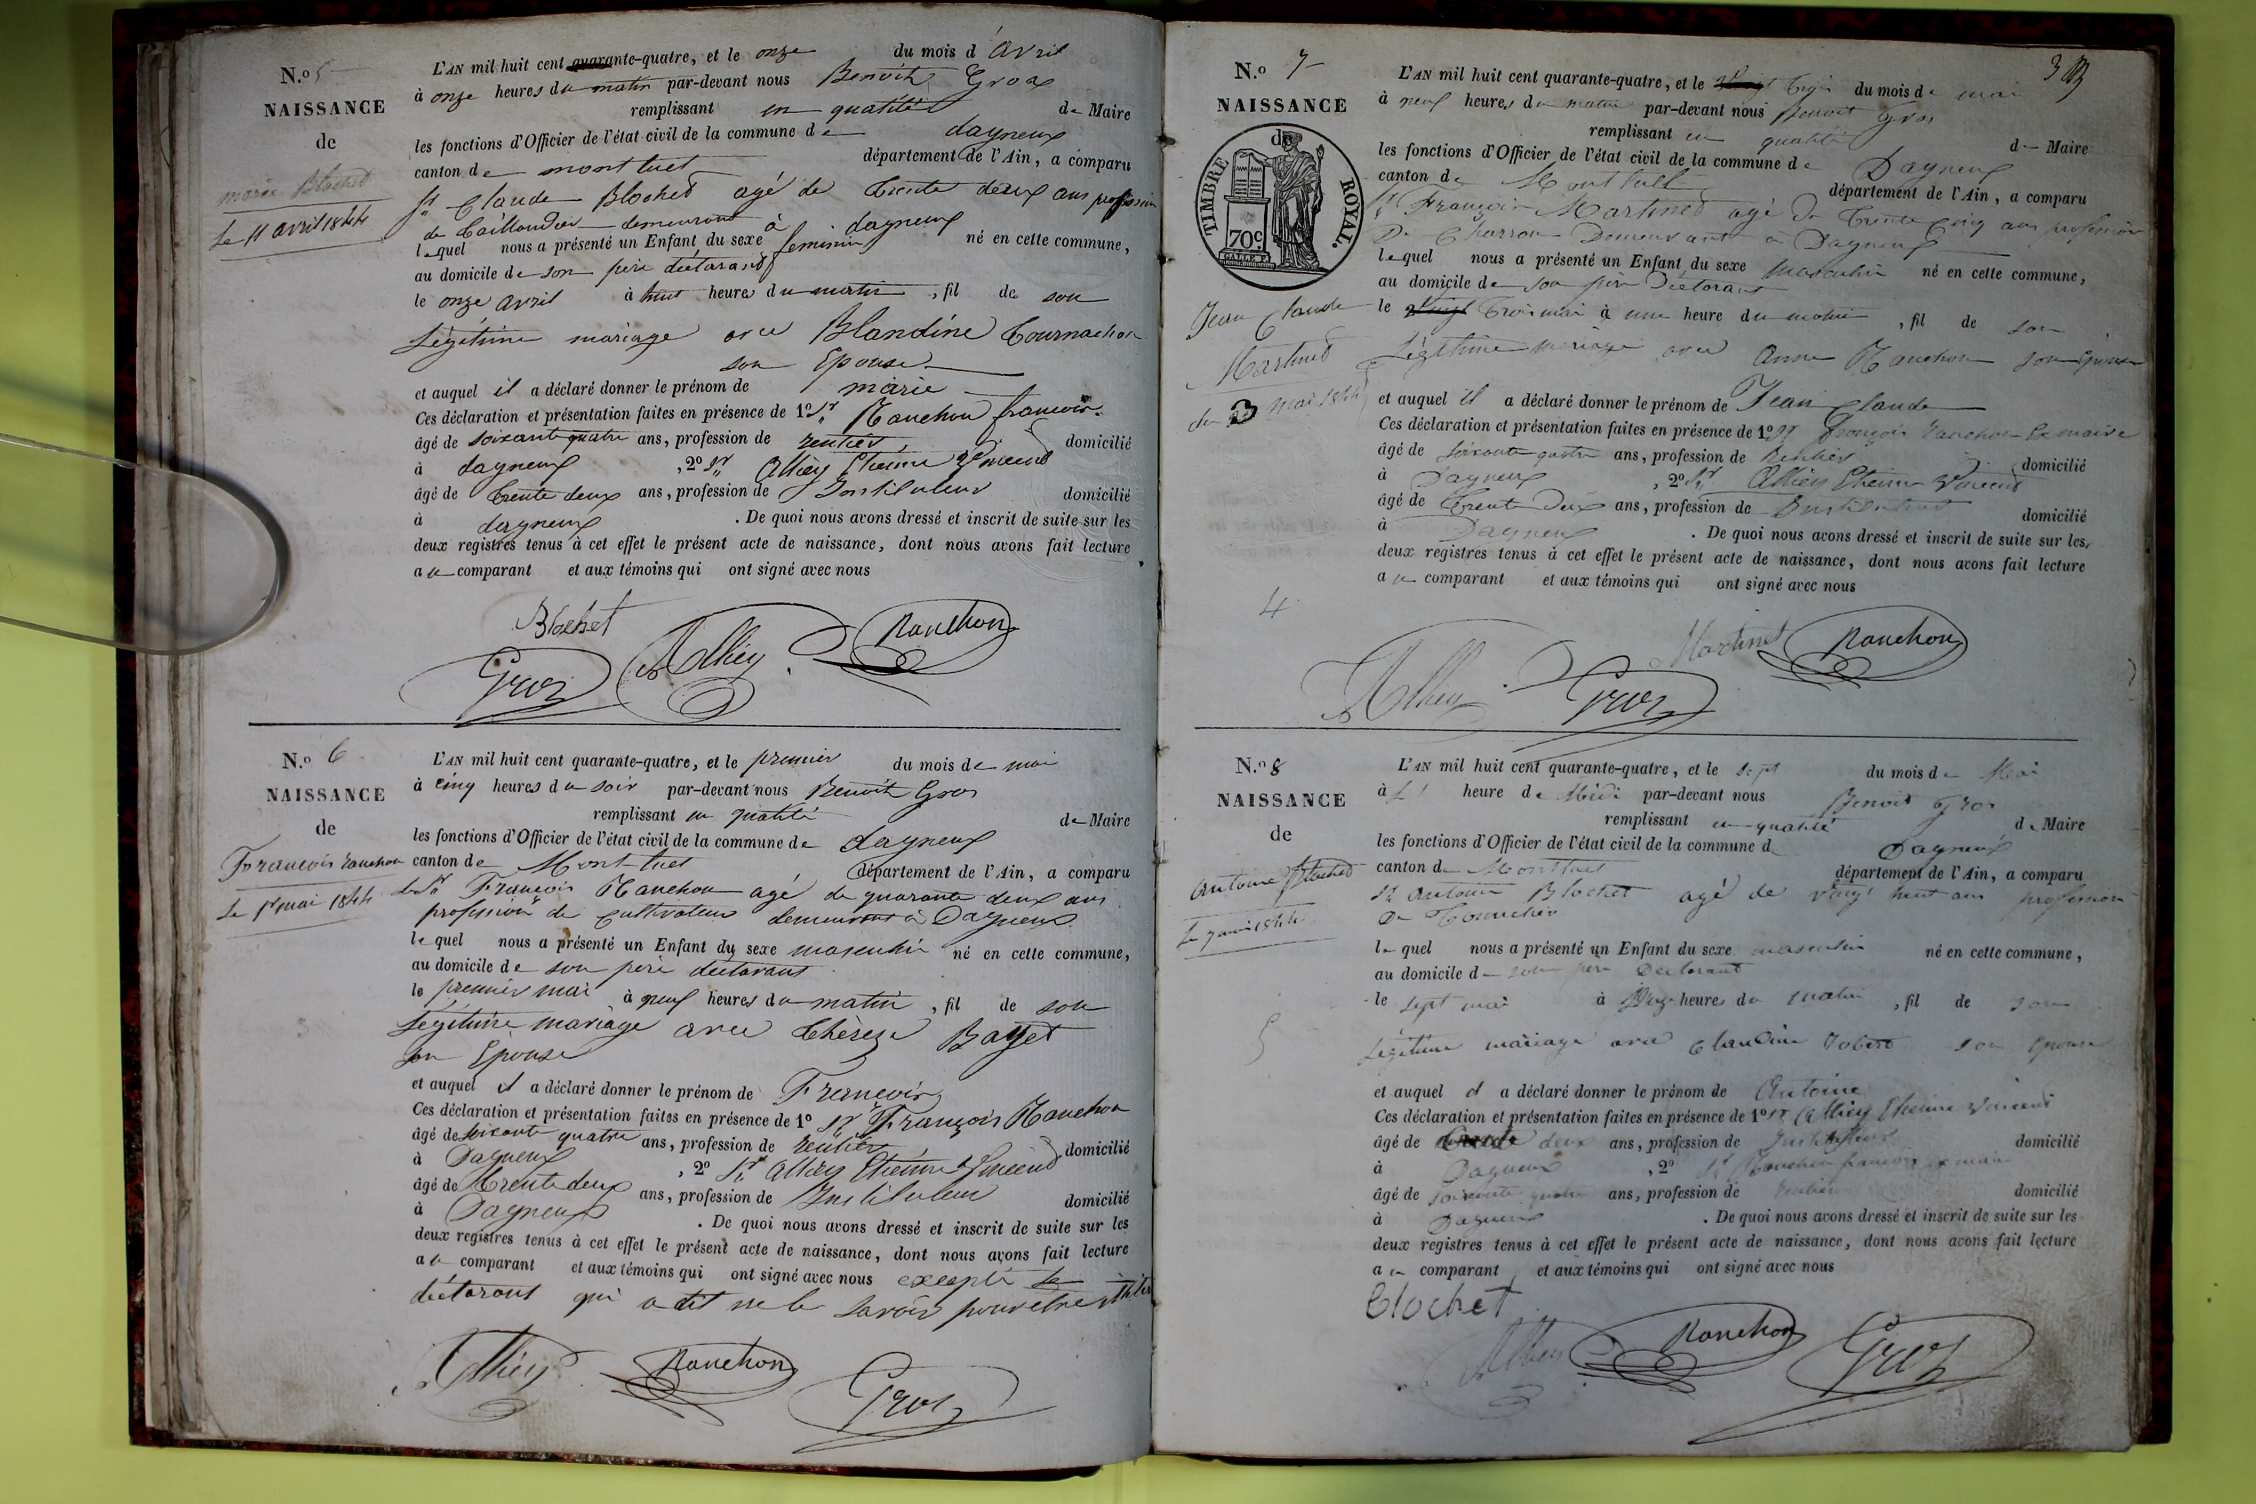 N.o 5
NAISSANCE
de
marie Blochet
Le 11 avril 1844
L'AN mil huit cent quarante-quatre, et le onze du mois d'Avril
à onze heures du matin par-devant nous Benoit Gros
remplissant en qualité de Maire
les fonctions d'Officier de l'état civil de la commune de dagneux
canton de montluel département de l'Ain, a comparu
Sr Claude Blochet agé de trente deux ans profession
de taillandier demeurant à dagneux
lequel nous a présenté un Enfant du sexe feminin né en cette commune,
au domicile de son père déclarant
le onze avril à huit heures du matin, fil de son
Légitime mariage avec Blandine Tournachon
son Epouse
et auquel il a déclaré donner le prénom de marie
Ces déclaration et présentation faites en présence de 1o Sr Ranchon francois
âgé de soixante quatre ans, profession de rentier domicilié
à dagneux, 2o Sr Alhiey Etienne Vincent
âgé de trente deux ans, profession de Instituteur domicilié
à dagneux. De quoi nous avons dressé et inscrit de suite sur les
deux registres tenus à cet effet le présent acte de naissance, dont nous avons fait lecture
au comparant et aux témoins qui ont signé avec nous
Blochet
Ranchon
Alhiey
Gros
N.o 6
NAISSANCE
de
François Ranchon
Le 1er mai 1844
L'AN mil huit cent quarante-quatre, et le premier du mois de mai
à cinq heures du soir par-devant nous Benoit Gros
remplissant en qualité de Maire
les fonctions d'Officier de l'état civil de la commune de dagneux
canton de Montluel département de l'Ain, a comparu
le Sr François Ranchon agé de quarante deux ans
profession de cultivateur demeurant à Dagneux
lequel nous a présenté un Enfant du sexe masculin né en cette commune,
au domicile de son père déclarant
le premier mai à neuf heures du matin, fil de son
Légitime mariage avec Thérèze Bayet
son Epouse
et auquel il a déclaré donner le prénom de François
Ces déclaration et présentation faites en présence de 1o Sr François Ranchon
âgé de soixante quatre ans, profession de rentier domicilié
à Dagneux, 2o Sr Alhiey Etienne Vincent
âgé de trente deux ans, profession de Instituteur domicilié
à Dagneux. De quoi nous avons dressé et inscrit de suite sur les
deux registres tenus à cet effet le présent acte de naissance, dont nous avons fait lecture
au comparant et aux témoins qui ont signé avec nous excepté le
déclarant qui a dit ne le savoir pour être
Alhiey
Ranchon
Gros
3
N.o 7
NAISSANCE
de
TIMBRE ROYAL.
70c.
Jean Claude
Martinet
du 3 mai 1844
4
L'AN mil huit cent quarante-quatre, et le trois du mois de mai
à neuf heures du matin par-devant nous Benoit Gros
remplissant en qualité de Maire
les fonctions d'Officier de l'état civil de la commune de Dagneux
canton de Montluel département de l'Ain, a comparu
Sr François Martinet agé de trente cinq ans profession
De Charron Demeurant a Dagneux
lequel nous a présenté un Enfant du sexe masculin né en cette commune,
au domicile de son père Déclarant
le trois mai à une heure du matin, fil de son
Légitime mariage avec Anne Ranchon son épouse
et auquel il a déclaré donner le prénom de Jean Claude
Ces déclaration et présentation faites en présence de 1o Sr François Ranchon Ex maire
âgé de soixante quatre ans, profession de Rentier domicilié
à Dagneux, 2o Sr Alhiey Etienne Vincent
âgé de trente Deux ans, profession de Instituteur domicilié
à Dagneux. De quoi nous avons dressé et inscrit de suite sur les
deux registres tenus à cet effet le présent acte de naissance, dont nous avons fait lecture
au comparant et aux témoins qui ont signé avec nous
Martinet
Ranchon
Alhiey
Gros
N.o 8
NAISSANCE
de
Antoine Blochet
Le 7 mai 1844
5
L'AN mil huit cent quarante-quatre, et le sept du mois de Mai
à heure de Midi par-devant nous Benoit Gros
remplissant en qualité de Maire
les fonctions d'Officier de l'état civil de la commune d Dagneux
canton de Montluel département de l'Ain, a comparu
Sr Antoine Blochet agé de vingt huit ans profession
De
lequel nous a présenté un Enfant du sexe masculin né en cette commune,
au domicile de son père Déclarant
le sept mai à heures du matin, fil de son
Légitime mariage avec Claudine son épouse
et auquel il a déclaré donner le prénom de Antoine
Ces déclaration et présentation faites en présence de 1o Sr Alhiey Etienne Vincent
âgé de trente deux ans, profession de Instituteur domicilié
à Dagneux, 2o Sr Ranchon françois ex maire
âgé de soixante quatre ans, profession de rentier domicilié
à Dagneux. De quoi nous avons dressé et inscrit de suite sur les
deux registres tenus à cet effet le présent acte de naissance, dont nous avons fait lecture
au comparant et aux témoins qui ont signé avec nous
Blochet
Alhiey
Ranchon
Gros